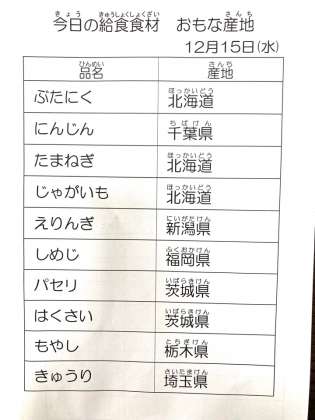 今日の給食食材 おもな産地
12月15日(水)
品名 産地
ぶたにく 北海道
にんじん 千葉県
たまねぎ 北海道
じゃがいも 北海道
えりんぎ 新潟県
しめじ 福岡県
パセリ 茨城県
はくさい 茨城県
もやし 栃木県
きゅうり 埼玉県